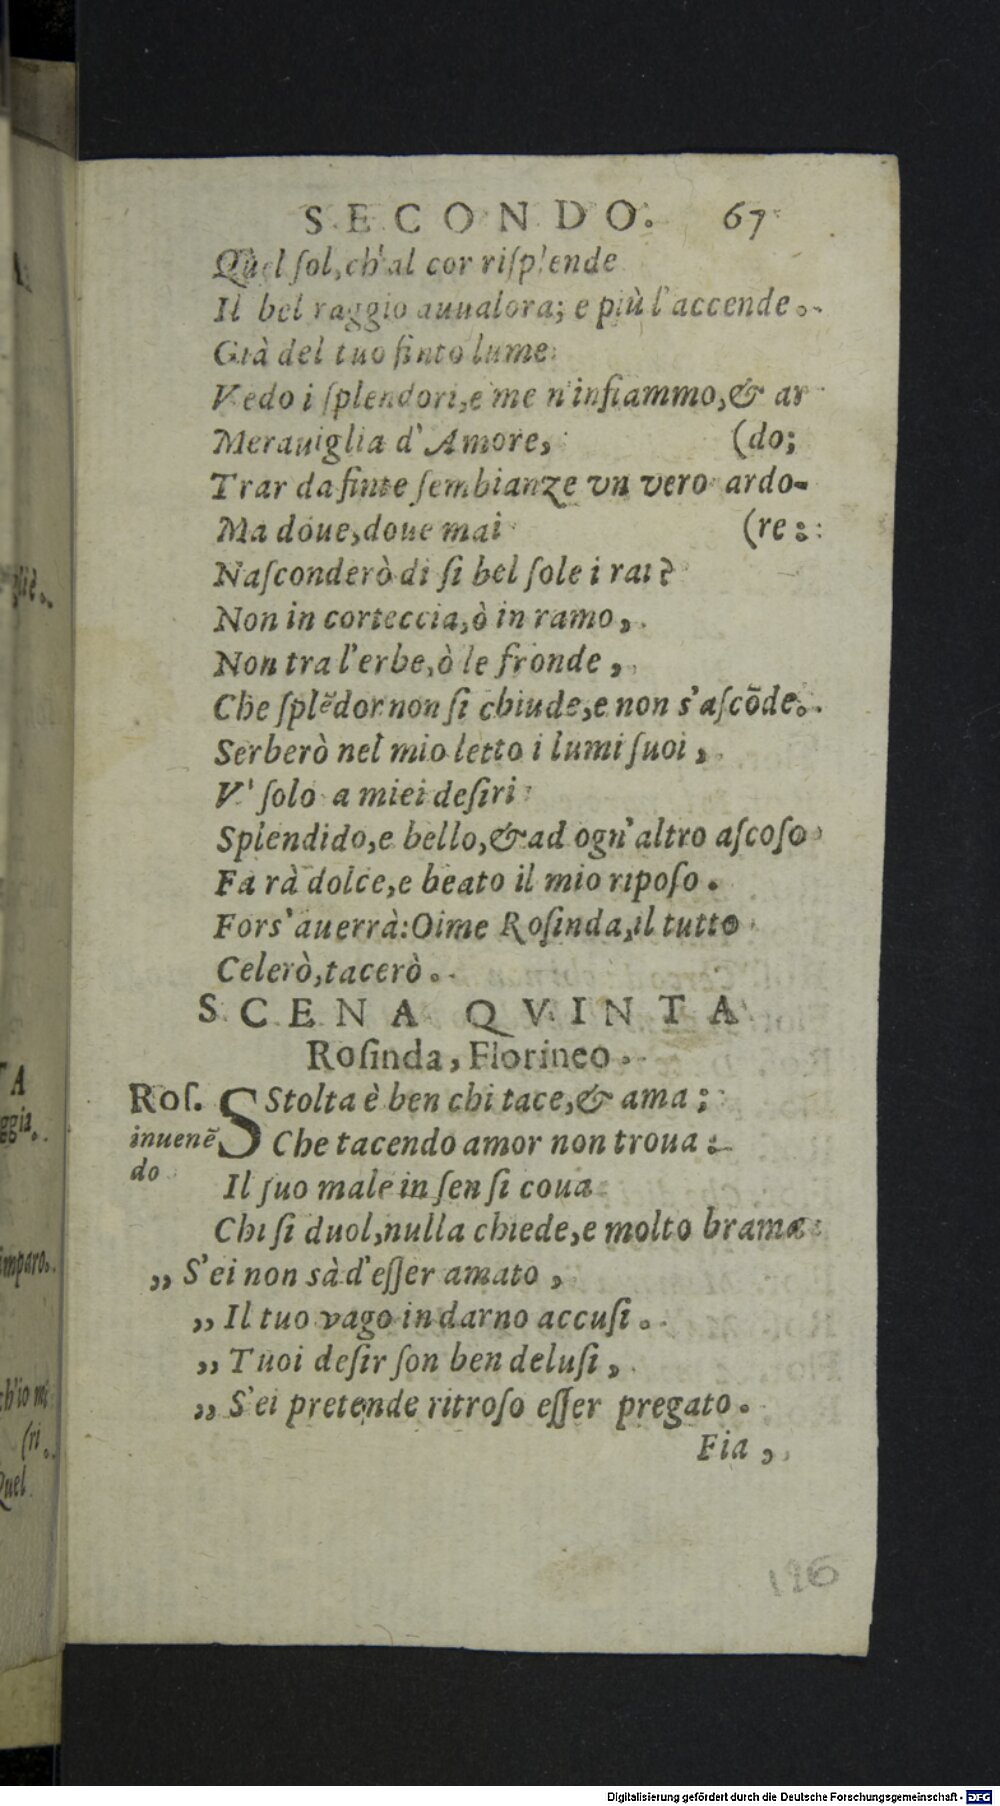 SECONDO. 67
Quel ſol, ch'al cor riſplende
Il bel raggio auualora; e più l'accende.
Già del tuo finto lume
Vedo i ſplendori, e me n'infiammo, & ar
Merauiglia d'Amore, (do;
Trar da finte ſembianze vn vero ardo-
Ma doue, doue mai (re:
Naſconderò di ſi bel ſole i rai?
Non in corteccia, ò in ramo,
Non tra l'erbe, ò le fronde,
Che ſplẽdor non ſi chiude, e non s'aſcõde.
Serberò nel mio letto i lumi ſuoi,
V' ſolo a miei deſiri
Splendido, e bello, & ad ogn'altro aſcoſo
Fa rà dolce, e beato il mio ripoſo.
Fors'auerrà: Oime Roſinda, il tutto
Celerò, tacerò.
SCENA QVINTA
Roſinda, Florineo.
Roſ. Stolta è ben chi tace, & ama;
inuenẽ Che tacendo amor non troua:
do
Il ſuo male in ſen ſi coua
Chi ſi duol, nulla chiede, e molto brama:
„ S'ei non sà d'eſſer amato,
„ Il tuo vago indarno accuſi.
„ Tuoi deſir ſon ben deluſi,
„ S'ei pretende ritroſo eſſer pregato.
Fia,
196
glie.
TA
ggia.
imparo.
ch'io mi
(ri.
Quel
Digitalisierung gefördert durch die Deutsche Forschungsgemeinschaft - DFG